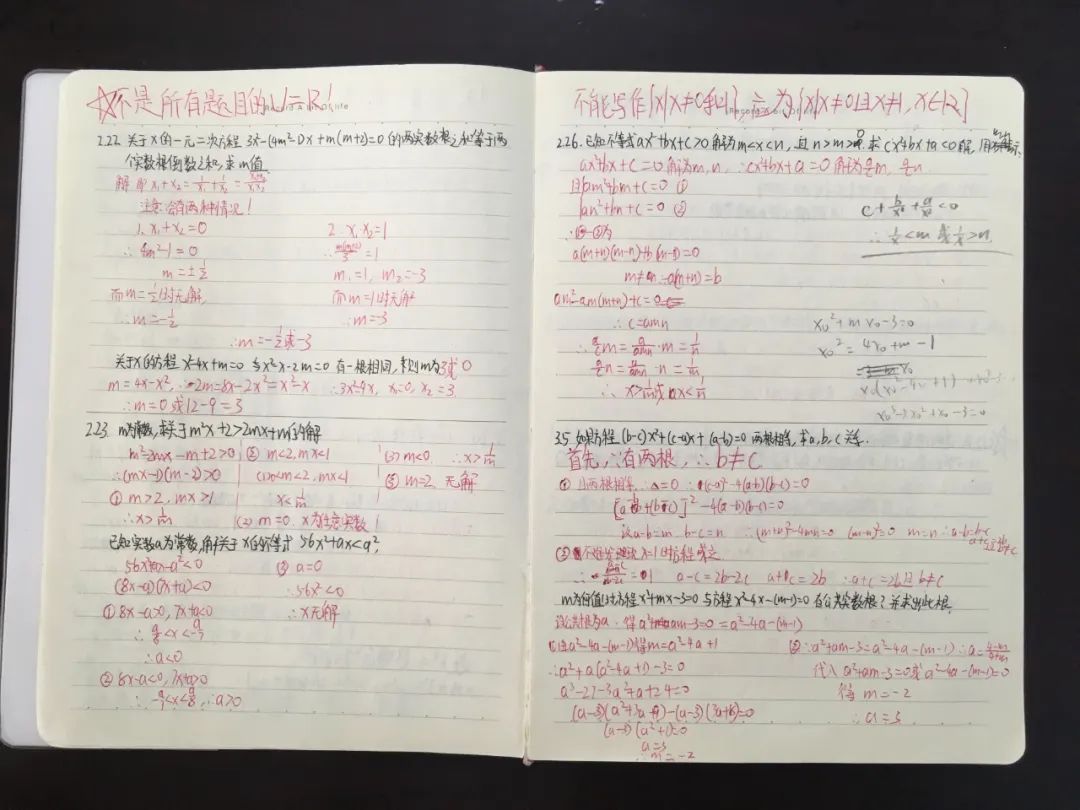 ☆不是所有题目的U=R!
2.22. 关于x的一元二次方程 3x²-(4m²-1)x+m(m+2)=0 的两实数根之和等于两
个实数根倒数之和,求m值.
解 即 x₁+x₂=1/x₁+1/x₂=
注意:会有两种情况!
1. x₁+x₂=0
∴ 4m²-1=0
m=±1/2
而m=1/2时无解
∴m=-1/2
2. x₁·x₂=1
∴m(m+2)/3=1
m₁=1, m₂=-3
而m=1时无解
∴m=-3
∴m=-1/2或-3
关于x的方程 x²-4x+m=0 与x²-x-2m=0 有一根相同,则m为3或0
m=4x-x², ∴-2m=8x-2x²=x²-x ∴3x²=9x, x₁=0, x₂=3.
∴m=0或12-9=3
2.23. m为常数,求关于m²x+2>2mx+m的解
m²x-2mx-m+2>0
∴(mx-1)(m-2)>0
① m>2, mx>1
∴x>1/m
② m<2, mx<1
(1)0<m<2, mx<1
x<1/m
(2) m=0. x为任意实数!
(3) m<0. ∴x>1/m
③ m=2, 无解
已知实数a为常数,解关于x的不等式 56x²+ax<a²
56x²+ax-a²<0
(8x-a)(7x+a)<0
① 8x-a>0, 7x+a<0
∴ a/8<x<-a/7
∴a<0
② 8x-a<0, 7x+a>0
∴ -a/7<x<a/8, ∴a>0
③ a=0
∴56x²<0
∴x无解
不能写作{x|x≠0和1},应为{x|x≠0且x≠1, x∈R}
2.26. 已知不等式ax²+bx+c>0解为m<x<n, 且n>m>0, 求cx²+bx+a<0解,用m,n表示.
ax²+bx+c=0解为m,n, ∴cx²+bx+a=0解为
且am²+bm+c=0 ①
an²+bn+c=0 ②
∴①-②为
a(m+n)(m-n)+b(m-n)=0
m≠n ∴-a(m+n)=b
am²-am(m+n)+c=0
∴c=amn
∴ a/c m=a/amn·m=1/n
a/c n=a/amn·n=1/m
∴ x>1/m或x<1/n
c+b/x+a/x²<0
∴1/x<m 或1/x>n.
x₀²+mx₀-3=0
x₀²=4x₀+m-1
3.5. 如果方程(b-c)x²+(c-a)x+(a-b)=0 两根相等,求a,b,c关系.
首先,∵有两根,∴b≠c
① ∵两根相等 ∴Δ=0 ∴(c-a)²-4(a-b)(b-c)=0
[(a-b)+(b-c)]²-4(a-b)(b-c)=0
设a-b=m, b-c=n ∴(m+n)²-4mn=0 (m-n)²=0 m=n ∴a-b=b-c
a+c=2b且b≠c
② 不难发现x=1时方程成立
a-c=2b-2c a+c=2b ∴a+c=2b且b≠c
m为何值时方程x²+mx-3=0与方程x²-4x-(m-1)=0有公共实数根?并求出此根
设公共根为a. 得a²+am-3=0=a²-4a-(m-1)
①由a²-4a-(m-1)得m=a²-4a+1
∴a²+a(a²-4a+1)-3=0
a³-27-3a²+a+24=0
(a-3)(a²+1)=0
a=3
∴m=-2
② ∴a²+am-3=a²-4a-(m-1)
代入a²+am-3=0或a²-4a-(m-1)=0
得 m=-2
∴a=3